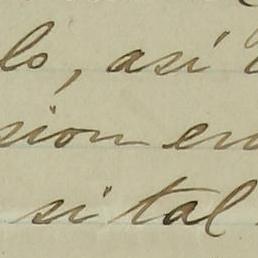 ls, así
sion en
si tal